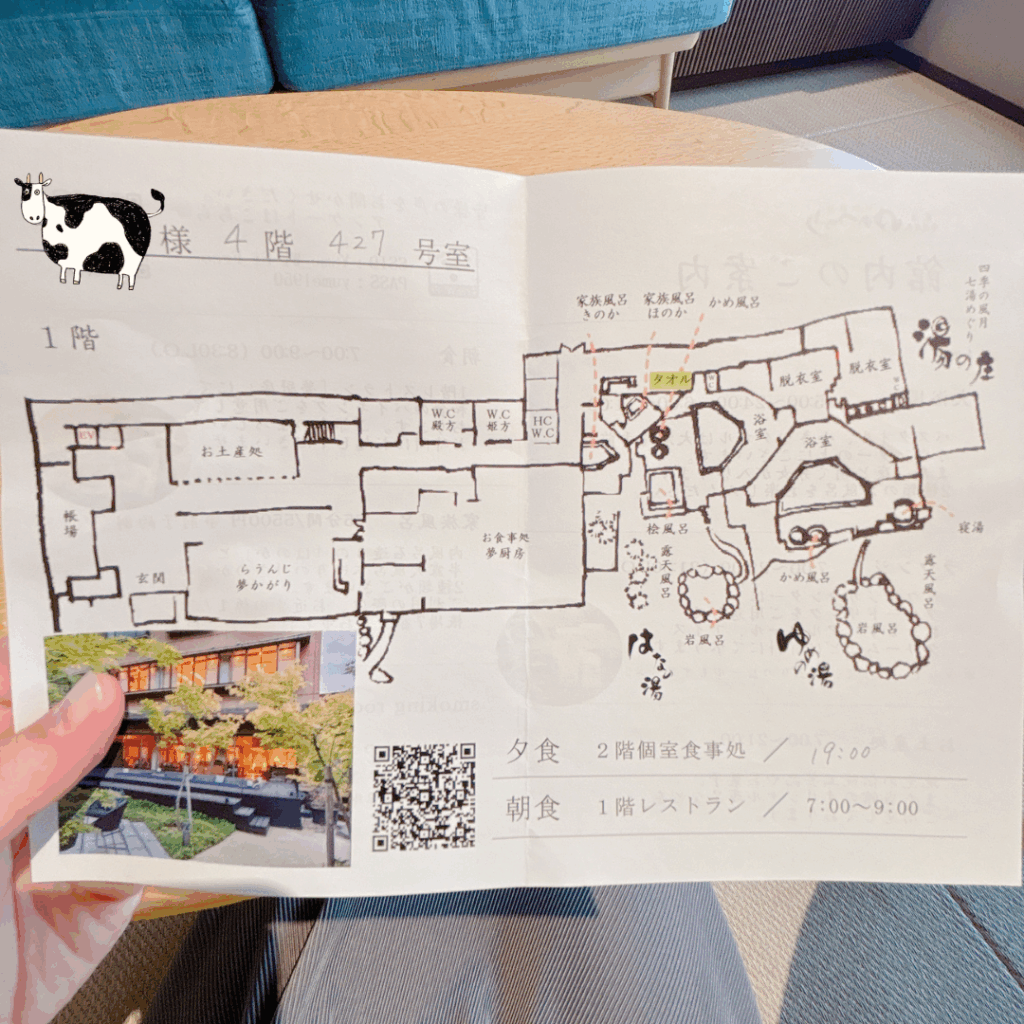 様 4階 427 号室
1階
四季の風月
七湯めぐり
湯の座
家族風呂
きのか
家族風呂
ほのか
かめ風呂
タオル
脱衣室
脱衣室
浴室
浴室
W.C
殿方
W.C
姫方
HC
W.C
EV
お土産処
帳場
玄関
らうんじ
夢かがり
お食事処
夢厨房
桧風呂
露天風呂
岩風呂
はなの湯
かめ風呂
寝湯
露天風呂
岩風呂
ゆめの湯
夕食 2階個室食事処 / 19:00
朝食 1階レストラン / 7:00〜9:00